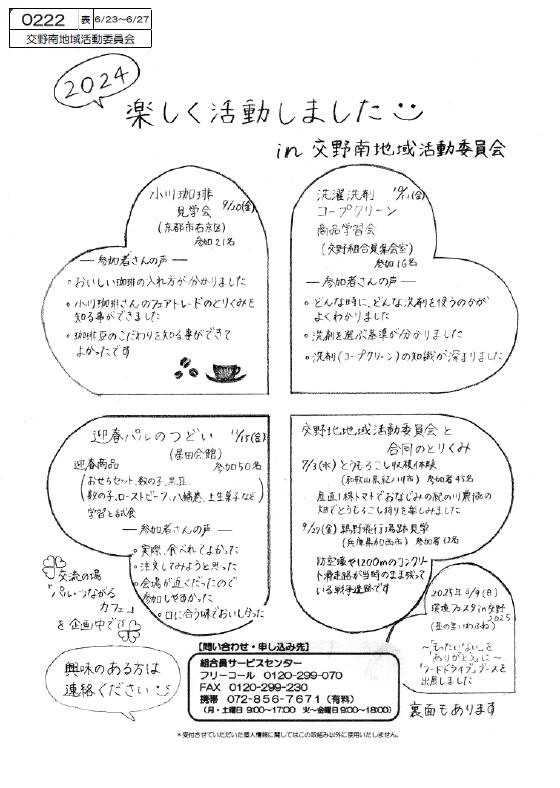 0222 表 6/23～6/27
交野南地域活動委員会
2024
楽しく活動しました
in 交野南地域活動委員会
小川珈琲 9/20(金)
見学会
(京都市右京区)
参加21名
―参加者さんの声―
○おいしい珈琲の入れ方が分かりました
○小川珈琲さんのフェアトレードのとりくみを
知る事ができました
○珈琲豆のこだわりを知る事ができて
よかったです
洗濯洗剤 (金)
コープクリーン
商品学習会
(交野組合員集会室)
参加16名
―参加者さんの声―
○どんな時に、どんな洗剤を使うのかが
よくわかりました
○洗剤を選ぶ基準が分かりました
○洗剤(コープクリーン)の知識が深まりました
迎春パルのつどい 11/15(金)
(星田会館)
迎春商品 参加50名
(おせちセット、数の子、黒豆、
数の子、ローストビーフ、八幡巻、上生菓子など)
学習と試食
―参加者さんの声―
○実際、食べれてよかった
○注文してみようと思った
○会場が近くだったので
参加しやすかった
○口に合う味でおいしかった
交野北地域活動委員会と
合同のとりくみ
7/3(水)とうもろこし収穫体験
(和歌山県紀ノ川市) 参加者45名
産直1株トマトでおなじみの紀の川農協の
畑でとうもろこし狩りを楽しみました
9/27(金)鶉野飛行場跡見学
(兵庫県加西市) 参加者12名
防空壕や1200mのコンクリー
ト滑走路が当時のまま残って
いる戦争遺跡です
交流の場
「パル・つながる
カフェ」
を企画中です
興味のある方は
連絡ください
【問い合わせ・申し込み先】
組合員サービスセンター
フリーコール 0120-299-070
FAX 0120-299-230
携帯 072-856-7671(有料)
(月・土曜日 9:00～17:00 火～金曜日 9:00～18:00)
2025年3/9(日)
環境フェスタin交野
2025
(星の里いわふね)
～「もったいない」を
「ありがとう」に～
「フードドライブ」ブースを
出展しました
裏面もあります
＊受付させていただいた個人情報に関してはこの取組み以外に使用いたしません。